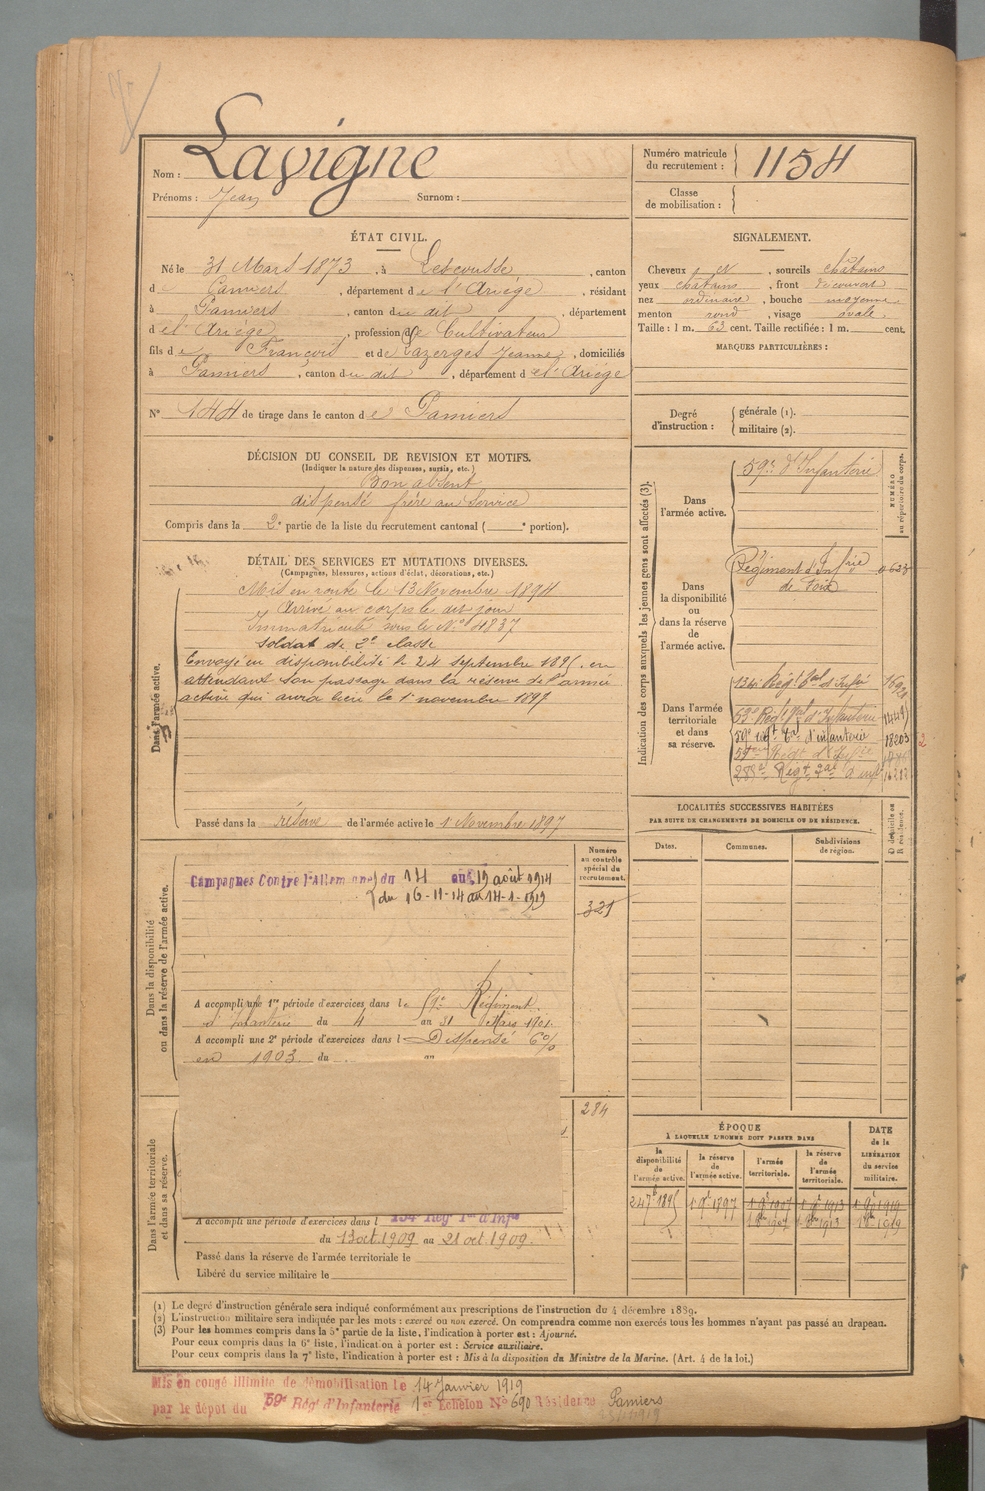 Nom : Lavigne
Prénoms : Jean Surnom :
Numéro matricule du recrutement : 1154
Classe de mobilisation :
ÉTAT CIVIL.
Né le 31 Mars 1873, à Lescousse, canton
de Pamiers, département de l'Ariège, résidant
à Pamiers, canton du dit, département
de l'Ariège, profession de Cultivateur
fils de François et de Lazerges Jeanne, domiciliés
à Pamiers, canton du dit, département de l'Ariège
N° 144 de tirage dans le canton de Pamiers
SIGNALEMENT.
Cheveux et, sourcils châtains
yeux châtains, front découvert
nez ordinaire, bouche moyenne
menton rond, visage ovale.
Taille : 1 m. 63 cent. Taille rectifiée : 1 m. cent.
MARQUES PARTICULIÈRES :
Degré d'instruction : générale (1).
militaire (2).
DÉCISION DU CONSEIL DE REVISION ET MOTIFS.
(Indiquer la nature des dispenses, sursis, etc.)
Bon absent
dispensé frère au service
Compris dans la 2e partie de la liste du recrutement cantonal ( e portion).
DÉTAIL DES SERVICES ET MUTATIONS DIVERSES.
(Campagnes, blessures, actions d'éclat, décorations, etc.)
Dans l'armée active.
Mis en route le 13 Novembre 1894
Arrivé au corps le dit jour
Immatriculé sous le N° 4837
Soldat de 2e classe
Envoyé en disponibilité le 24 septembre 1895, en
attendant son passage dans la réserve de l'armée
active qui aura lieu le 1 novembre 1897
Passé dans la réserve de l'armée active le 1 Novembre 1897
Indication des corps auxquels les jeunes gens sont affectés (3).
NUMÉRO au répertoire du corps.
Dans l'armée active.
59e d'Infanterie
Dans la disponibilité ou dans la réserve de l'armée active.
Régiment d'Infrie
de Foix
Dans l'armée territoriale et dans sa réserve.
134e Régt Tal d'Infie
53e Régt Tal d'Infanterie
59e régt Tal d'infanterie 18203
59ème Régt d'Infie
Régt d'inf
LOCALITÉS SUCCESSIVES HABITÉES
PAR SUITE DE CHANGEMENTS DE DOMICILE OU DE RÉSIDENCE.
Dates. Communes. Subdivisions de région. D domicile ou R résidence.
Dans la disponibilité ou dans la réserve de l'armée active.
Numéro au contrôle spécial du recrutement.
Campagnes Contre l'Allemagne du 14 au 19 août 1914
du 16-11-14 au 14-1-1919
321
A accompli une 1re période d'exercices dans le 59e Régiment
d'Infanterie du 4 au 31 Mars 1901.
A accompli une 2e période d'exercices dans l Dispensé 6%
en 1903 du au
284
Dans l'armée territoriale et dans sa réserve.
A accompli une période d'exercices dans l 134e Régt Tal d'Infie
du 13 oct. 1909 au 21 oct. 1909.
Passé dans la réserve de l'armée territoriale le
Libéré du service militaire le
ÉPOQUE
À LAQUELLE L'HOMME DOIT PASSER DANS
DATE de la LIBÉRATION du service militaire.
la disponibilité de l'armée active. la réserve de l'armée active. l'armée territoriale. la réserve de l'armée territoriale.
24 7b 1895 1 9b 1897 1 9b 1907 1 9b 1913 1 9b 1919
1 1907 1 1913 1 1919
(1) Le degré d'instruction générale sera indiqué conformément aux prescriptions de l'instruction du 4 décembre 1889.
(2) L'instruction militaire sera indiquée par les mots : exercé ou non exercé. On comprendra comme non exercés tous les hommes n'ayant pas passé au drapeau.
(3) Pour les hommes compris dans la 5e partie de la liste, l'indication à porter est : Ajourné.
Pour ceux compris dans la 6e liste, l'indication à porter est : Service auxiliaire.
Pour ceux compris dans la 7e liste, l'indication à porter est : Mis à la disposition du Ministre de la Marine. (Art. 4 de la loi.)
Mis en congé illimité de démobilisation le 14 Janvier 1919
par le dépôt du 59e Régt d'Infanterie 1er Echelon N° 690 Résidence Pamiers